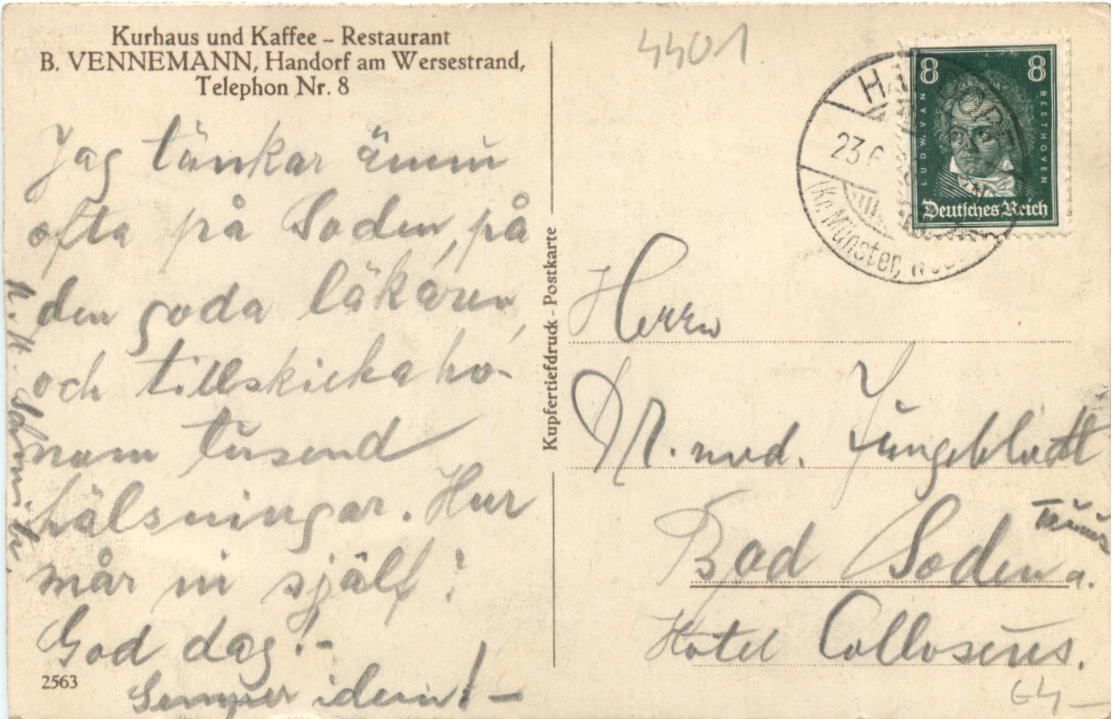 Kurhaus und Kaffee – Restaurant
B. VENNEMANN, Handorf am Wersestrand,
Telephon Nr. 8
Jag tänkar ännu
ofta på Soden, på
den goda läkaren,
och tillskicka ho-
nom tusend
hälsningar. Hur
mår ni själf?
God dag!-
Semper idem! -
2563
Kupfertiefdruck - Postkarte
4401
HANDORF
23.6
(Kr. Münster,
8 8
LUDW. VAN BEETHOVEN
Deutsches Reich
Herrn
Dr. med. Jungeblodt
Bad Soden a.
Taunus
Hotel Collosseus.
64 -